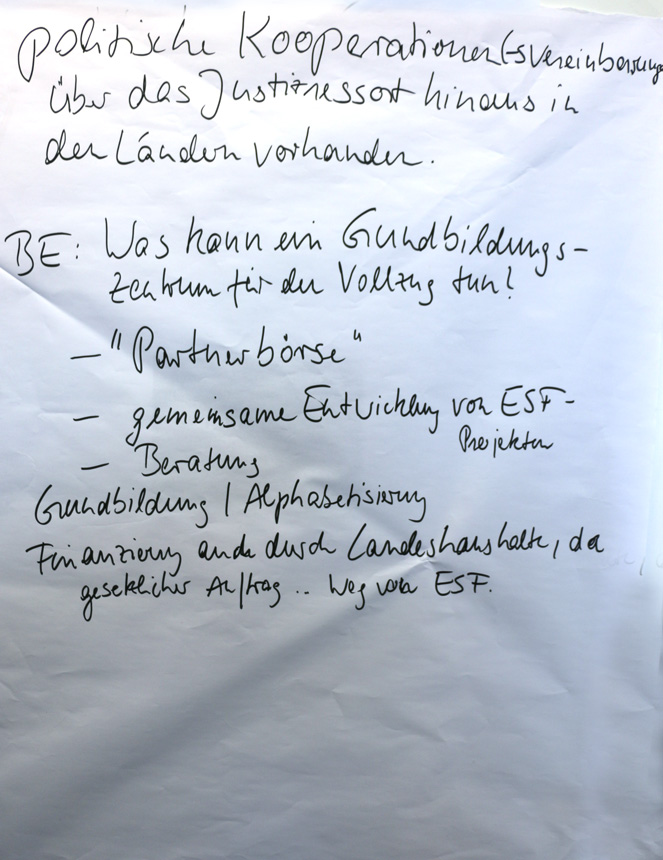 politische Kooperationen (-svereinbarung
über das Justizressort hinaus in
den Ländern vorhanden.
BE: Was kann ein Grundbildungs-
zentrum für den Vollzug tun?
– "Partnerbörse"
– gemeinsame Entwicklung von ESF-
Projekten
– Beratung
Grundbildung / Alphabetisierung
Finanzierung durch Landeshaushalte, da
gesetzlicher Auftrag .. weg von ESF.